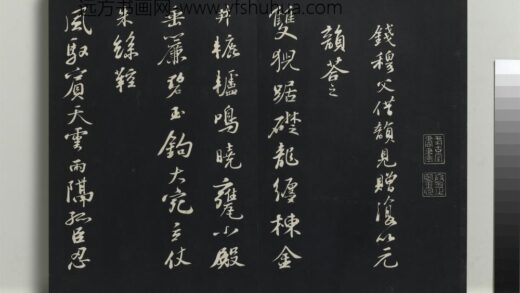 远方书画网：www.yfshuhua.com
錢穆父借韻見贈復以元
韻荅之
雙猊踞礎龍纏棟金
井轆轤鳴曉甕小殿
垂簾碧玉鉤大宛立仗
朱絲鞚
風馭賓天雲雨隔孤臣忍